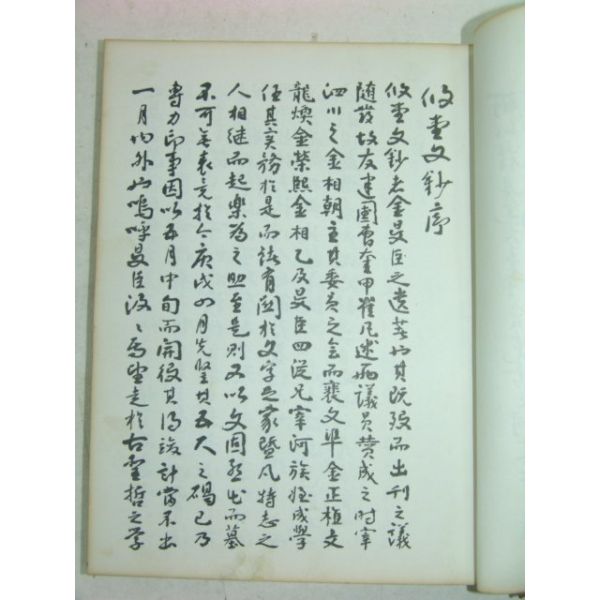 攸堂文鈔序
攸堂文鈔者金旻臣之遺著也其旣歿而出刊之議
隨發故友建國曹奎甲崔凡述兩議員贊成之時宰
泗川之金相朝主其委員之會而裵文準金正植文
龍煥金榮熙金相乙及旻臣四從兄宰河族姪成學
任其實務於是而諸有関於文字之家曁凡特志之
人相継而起樂為之助至是則又以文固然也而墓
不可無表竟於今庚戌四月先竪其五尺之碣已乃
專力印事因以五月中旬而開役其得竣計當不出
一月內外也嗚呼旻臣汲〻焉望走於古聖哲之学